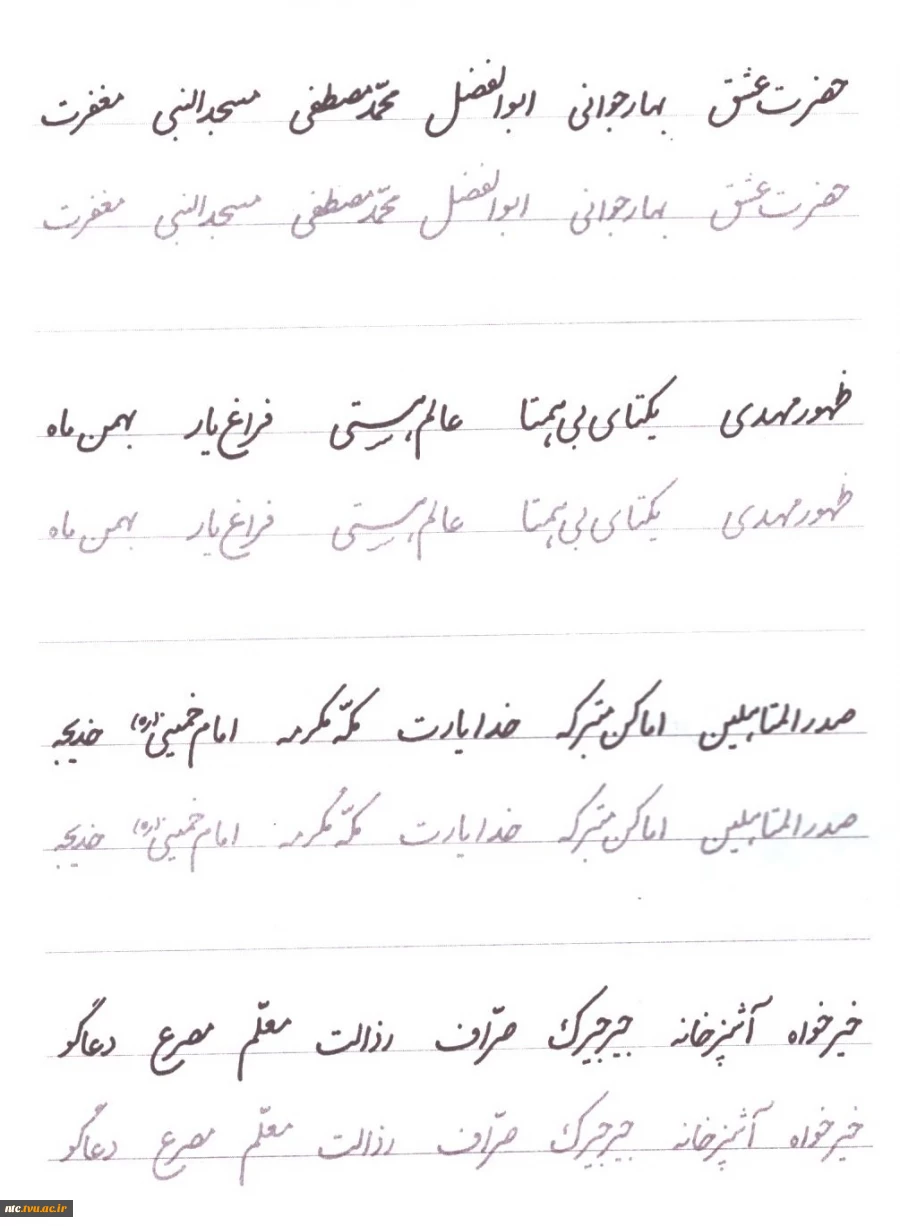 حضرت عشق بهار جوانی ابوالفضل محمّد مصطفی مسجدالنبی مغفرت
حضرت عشق بهار جوانی ابوالفضل محمّد مصطفی مسجدالنبی مغفرت
ظهور مهدی یکتای بی همتا عالم هستی فراغ یار بهمن ماه
ظهور مهدی یکتای بی همتا عالم هستی فراغ یار بهمن ماه
صدرالمتاهلین اماکن متبرکه خدایارت مکّه مکرمه امام خمینی (ره) خدیجه
صدرالمتاهلین اماکن متبرکه خدایارت مکّه مکرمه امام خمینی (ره) خدیجه
خیرخواه آشپزخانه جیرجیرک صرّاف رذالت معلّم مصرع دعاگو
خیرخواه آشپزخانه جیرجیرک صرّاف رذالت معلّم مصرع دعاگو
ntc.tvu.ac.ir